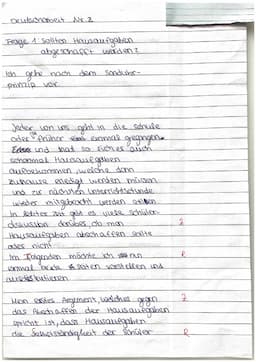 Deutscharbeit Nr. 2
Frage 1: Sollten Hausaufgaben
abgeschafft werden?
Ich gehe nach dem Sanduhr-
prinzip vor
Jeder von uns geht in die Schule
oder früher einmal gegangen.
und hat so sicher auch
schonmal Hausaufgaben
aufbekommen, welche dann
zuhause erledigt werden müssen
und zur nächsten Unterrichtsstunde
wieder mitgebracht werden
In letzter Zeit gibt es viele Schüler-
diskussion darüber, ob man
Hausaufgaben abschaffen sollte
oder nicht
Im Folgenden möchte ich nun
einmal beide Seiten vorstellen und
Mein erstes Argument, welches gegen
das Abschaffen der Hausaufgaben
spricht ist, dass Hausaufgaben
die Selbstständigkeit der Schüler
R